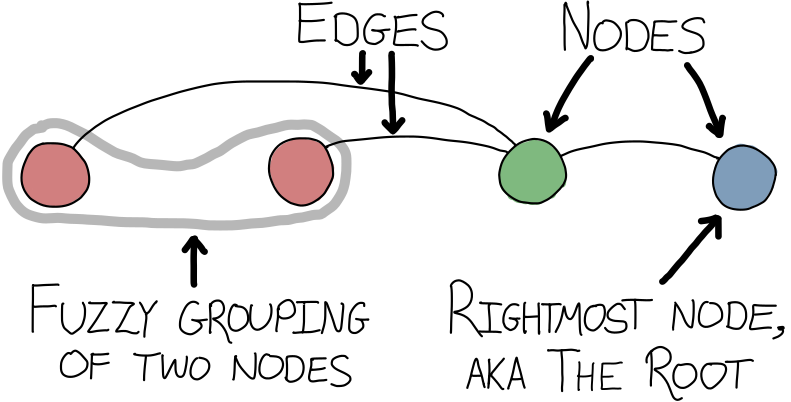 EDGES
NODES
FUZZY GROUPING
OF TWO NODES
RIGHTMOST NODE,
AKA THE ROOT